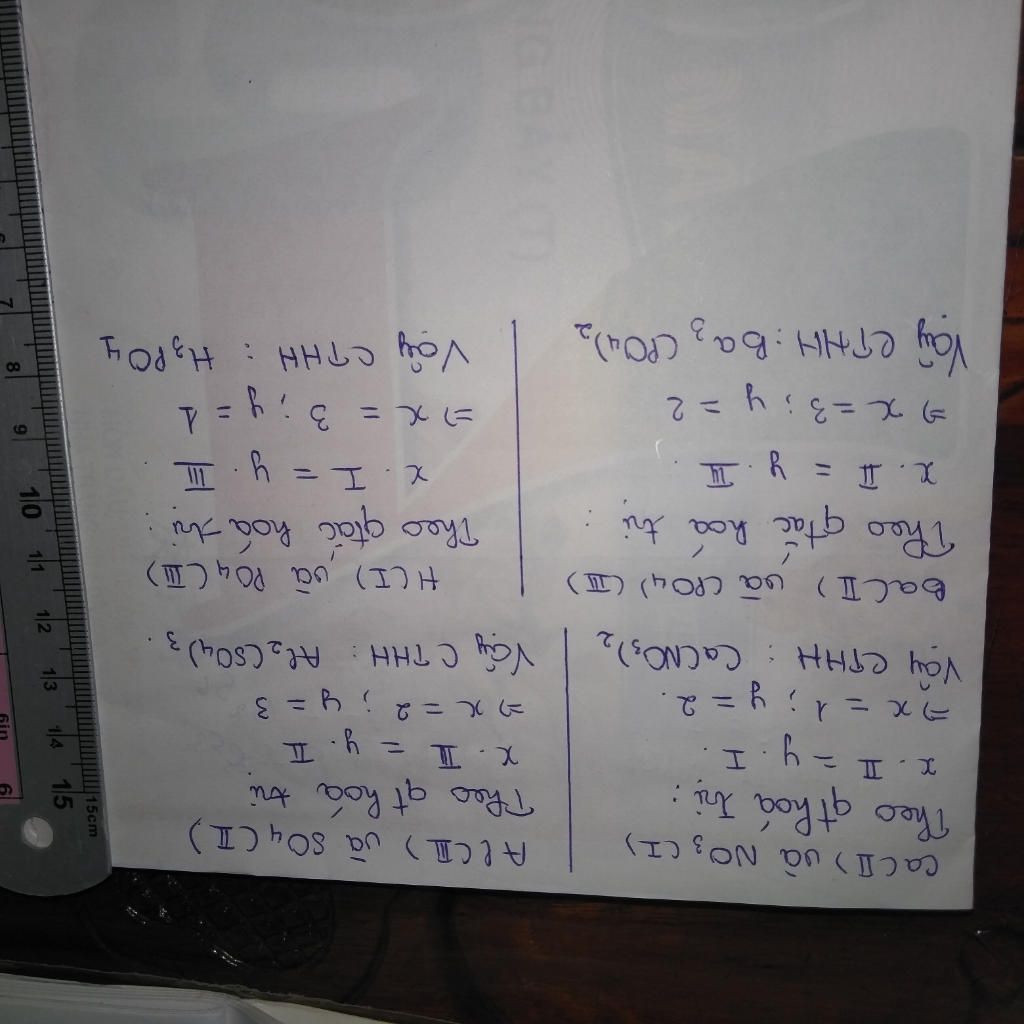 Ca(II) và NO3(I)
Theo qt hoá trị:
x. II = y. I.
=> x = 1; y = 2.
Vậy CTHH: Ca(NO3)2
Al(III) và SO4(II)
Theo qt hoá trị
x. III = y. II
=> x = 2; y = 3
Vậy CTHH: Al2(SO4)3.
Ba(II) và (PO4)(III)
Theo qtắc hoá trị:
x. II = y. III.
=> x = 3; y = 2
Vậy CTHH: Ba3(PO4)2
H(I) và PO4(III)
Theo qtắc hoá trị:
x. I = y. III.
=> x = 3; y = 1
Vậy CTHH: H3PO4
15cm
15
14
13
12
11
10
9
8
7
6
6in
6